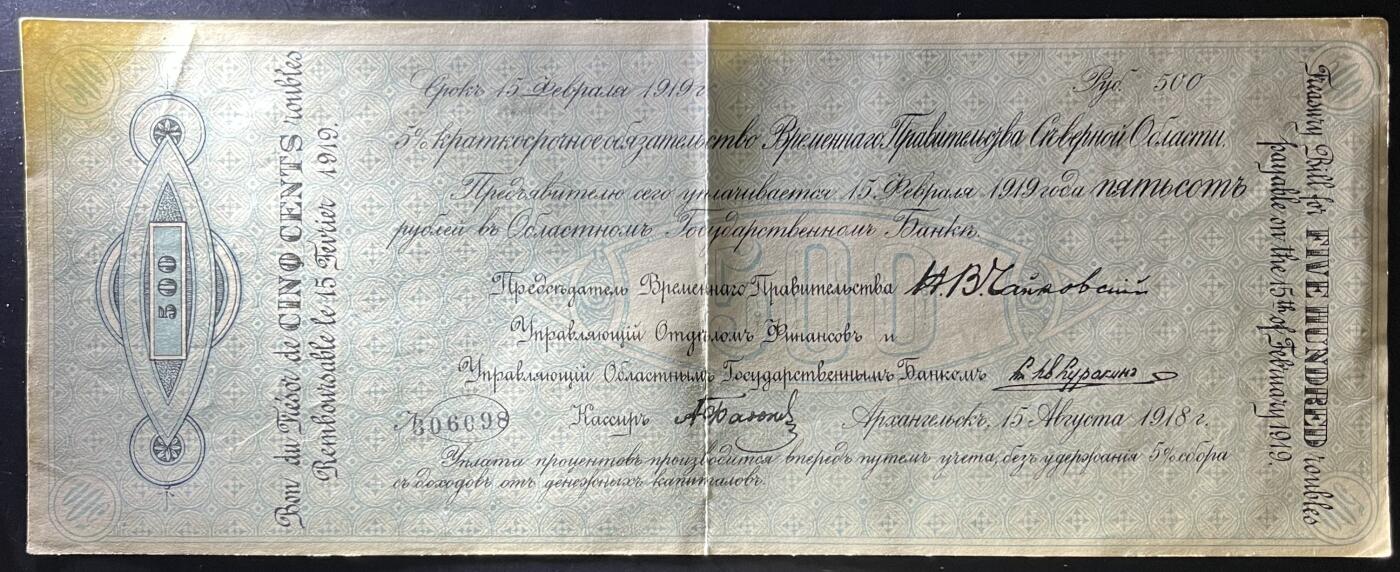 Bon du Trésor de CINQ CENTS roubles
Remboursable le 15 Fevrier 1919.
500
Срокъ 15 Февраля 1919 г
Руб. 500
5% краткосрочное обязательство Временнаго Правительства Сѣверной Области.
Предъявителю сего уплачивается 15 Февраля 1919 года пятьсотъ
рублей въ Областномъ Государственномъ Банкѣ.
500
Предсѣдатель Временнаго Правительства Н. В. Чайковский
Управляющій Отдѣломъ Финансовъ и
Управляющій Областнымъ Государственнымъ Банкомъ
№ 06098
Кассиръ
Архангельскъ, 15 Августа 1918 г.
Уплата процентовъ производится впередъ путемъ учета, безъ удержанія 5% сбора
съ доходовъ отъ денежныхъ капиталовъ.
Treasury Bill for FIVE HUNDRED roubles
payable on the 15th of February 1919.